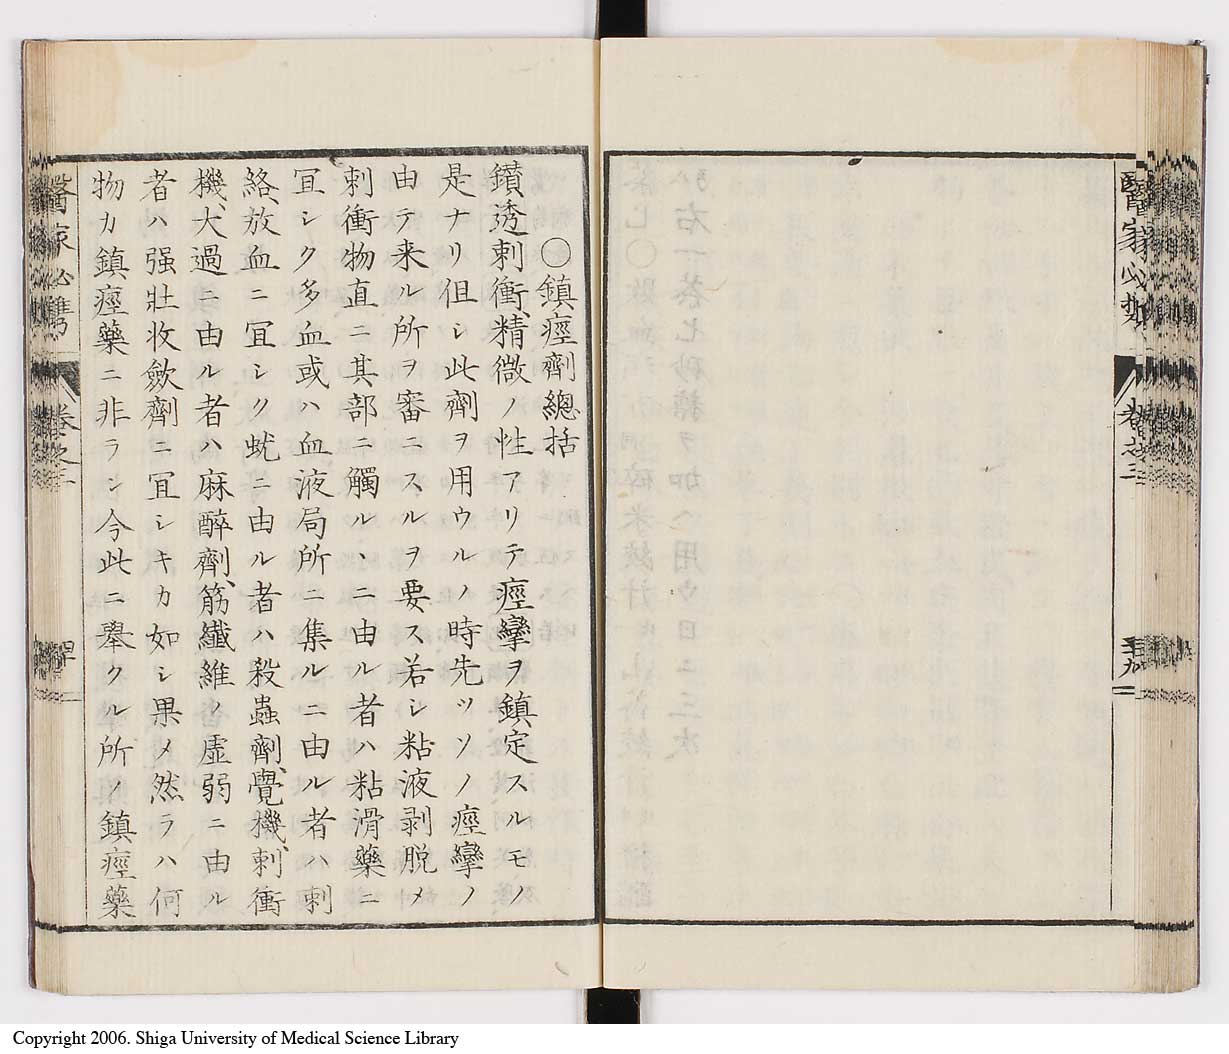 醫家必携
卷之三
三十九
○鎮痙劑總括
鑚透刺衝精微ノ性アリテ痙攣ヲ鎮定スルモノ
是ナリ但シ此劑ヲ用ウルノ時先ツソノ痙攣ノ
由テ来ル所ヲ審ニスルヲ要ス若シ粘液剥脱メ
刺衝物直ニ其部ニ觸ルヽニ由ル者ハ粘滑藥ニ
冝シク多血或ハ血液局所ニ集ルニ由ル者ハ刺
絡放血ニ冝シク蚘ニ由ル者ハ殺蟲劑、覺機刺衝
機、大過ニ由ル者ハ麻醉劑、筋纎維ノ虚弱ニ由ル
者ハ强壯收斂劑ニ冝シキカ如シ果メ然ラハ何
物カ鎮痙藥ニ非ラン今此ニ舉クル所ノ鎮痙藥
醫家必携
卷之三
Copyright 2006. Shiga University of Medical Science Library